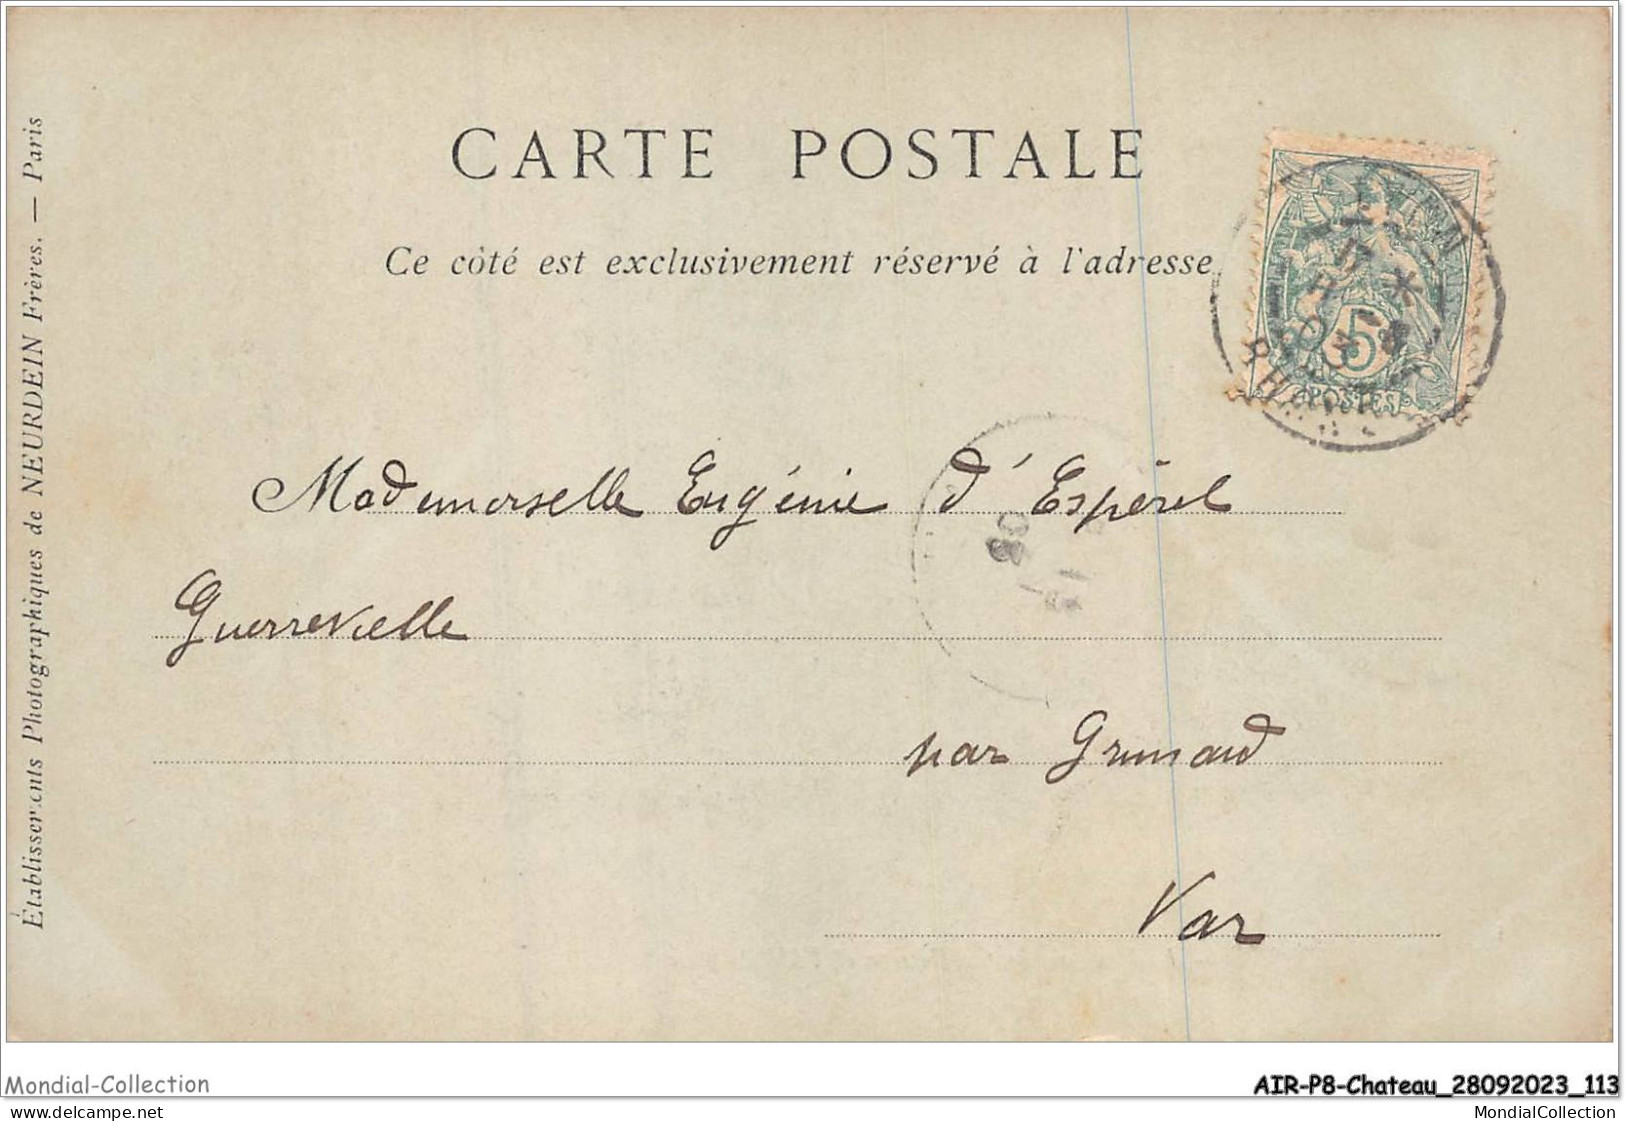 CARTE POSTALE
Ce côté est exclusivement réservé à l'adresse
5
POSTES
RHONE
Mademoiselle Eugénie d'Espérel
Guerrevielle
par Grimaud
Var
Établissements Photographiques de NEURDEIN Frères. — Paris
Mondial-Collection
AIR-P8-Chateau_28092023_113
mondial-collection
MondialCollection